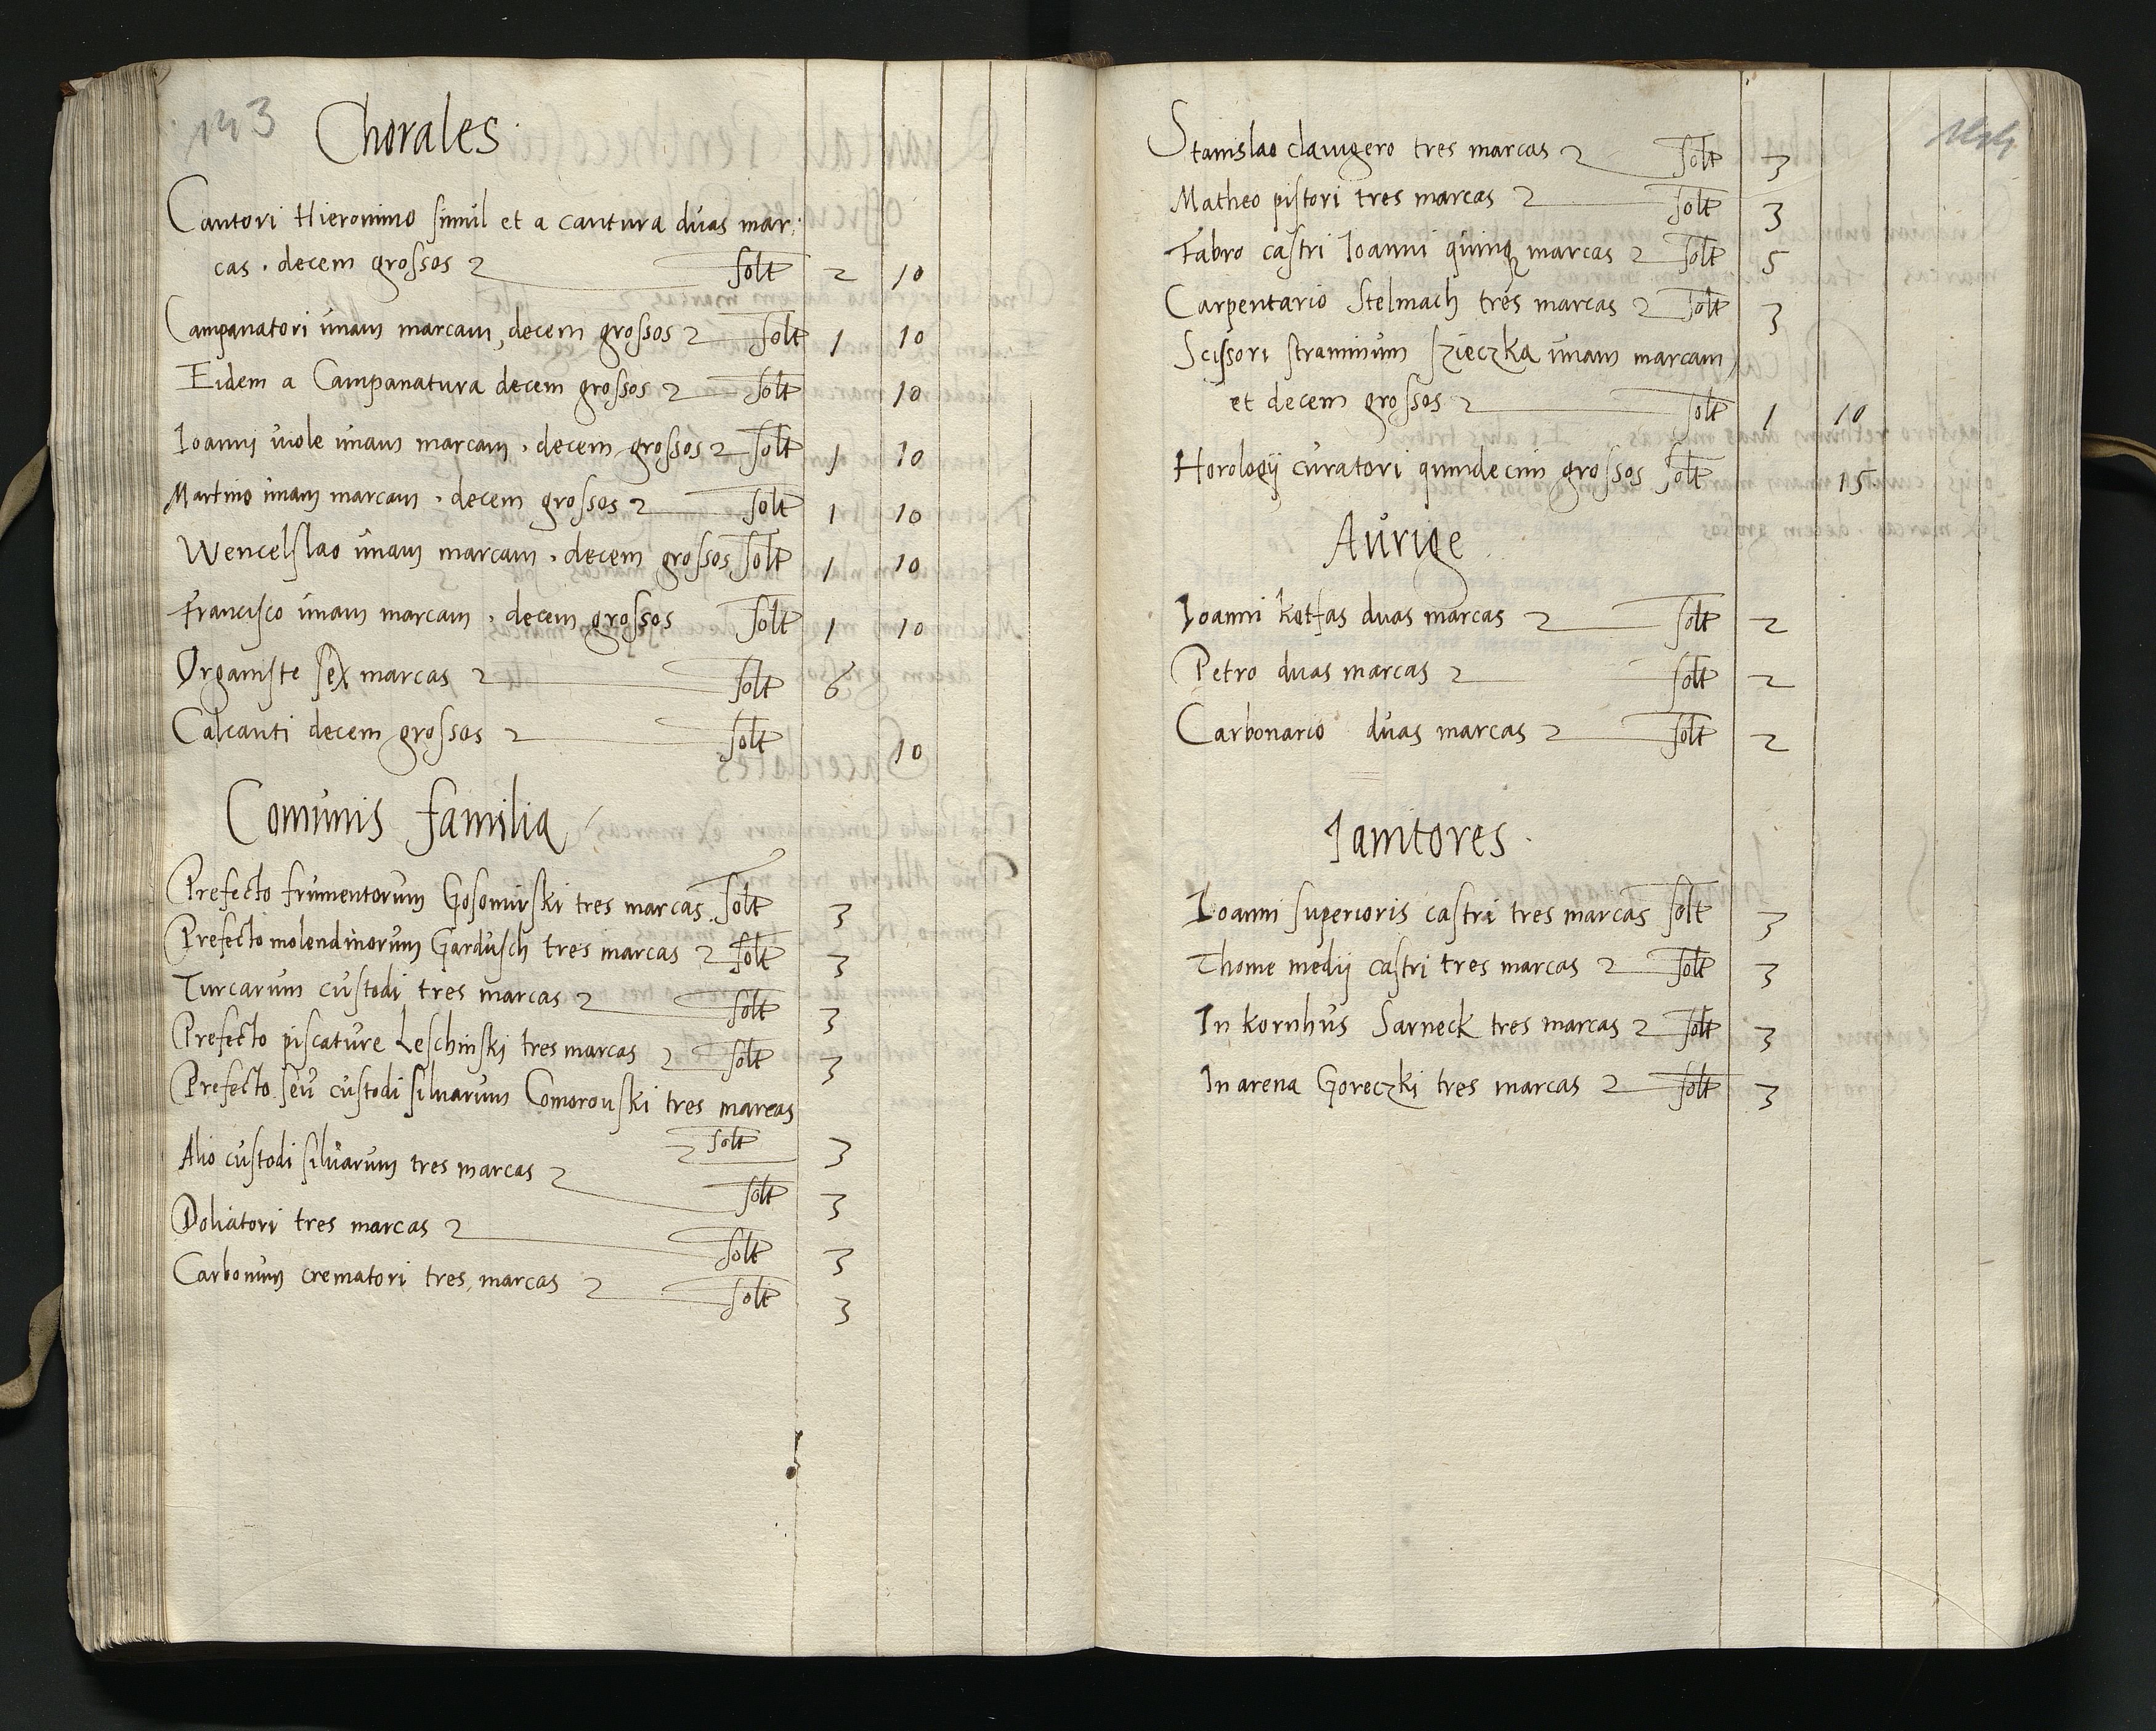 143
Chorales
Cantori Hieronimo simul et a cantura duas mar:
cas . decem grossos solt 2 10
Campanatori unam marcam, decem grossos solt 1 10
Eidem a Campanatura decem grossos solt 10
Ioanni viole unam marcam . decem grossos solt 1 10
Martino unam marcam . decem grossos solt 1 10
Wencelslao unam marcam . decem grossos solt 1 10
Francisco unam marcam . decem grossos solt 1 10
Organiste sex marcas solt 6
Calcanti decem grossos solt 10
Comunis familia
Prefecto frumentorum Gosomirski tres marcas solt 3
Prefecto molendinorum Gardusch tres marcas solt 3
Turcarum custodi tres marcas solt 3
Prefecto piscature Leschinski tres marcas solt 3
Prefecto seu custodi silvarum Comorouski tres marcas
solt 3
Alio custodi silvarum tres marcas solt 3
Doliatori tres marcas solt 3
Carbonum crematori tres marcas solt 3
144
Stanislao clavigero tres marcas solt 3
Matheo pistori tres marcas solt 3
Fabro castri Ioanni quinq marcas solt 5
Carpentario Stelmach tres marcas solt 3
Scissori straminum szieczka unam marcam
et decem grossos solt 1 10
Horologij curatori quindecim grossos solt 15
Aurige
Ioanni kotfas duas marcas solt 2
Petro duas marcas solt 2
Carbonario duas marcas solt 2
Ianitores
Ioanni superioris castri tres marcas solt 3
Thome medij castri tres marcas solt 3
In kornhus Sarneck tres marcas solt 3
In arena Goreczki tres marcas solt 3